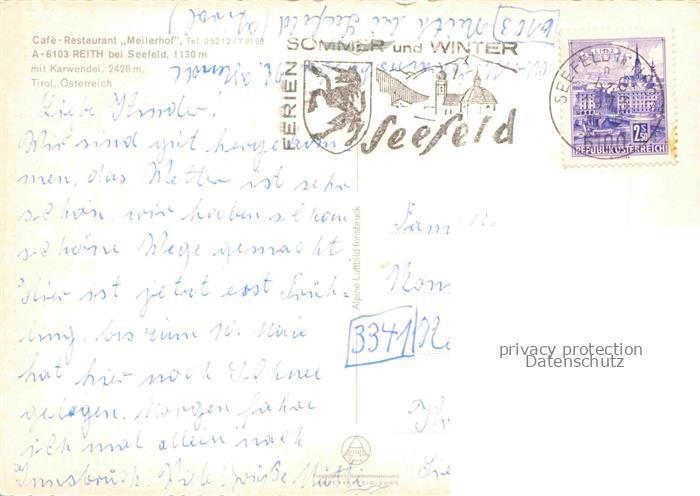 Café-Restaurant „Meilerhof", Tel. 05212/79165
A-6103 REITH bei Seefeld, 1130 m
mit Karwendel, 2428 m,
Tirol, Österreich
6103 Reith bei Seefeld (Tirol)
FERIEN
SOMMER und WINTER
Seefeld
SEEFELD
LINZ
2S
REPUBLIK ÖSTERREICH
Liebe Kinder!
Wir sind gut hergekom-
men, das Wetter ist sehr
schön, wir haben schon
schöne Wege gemacht
Hier ist jetzt erst Früh-
ling, bis zum 10. Mai
hat hier noch Schnee
gelegen. Morgen fahre
ich mal allein nach
Innsbruck. Viele Grüße Mutti
Alpine Luftbild Innsbruck
Fami
3341
privacy protection
Datenschutz
ALPINE